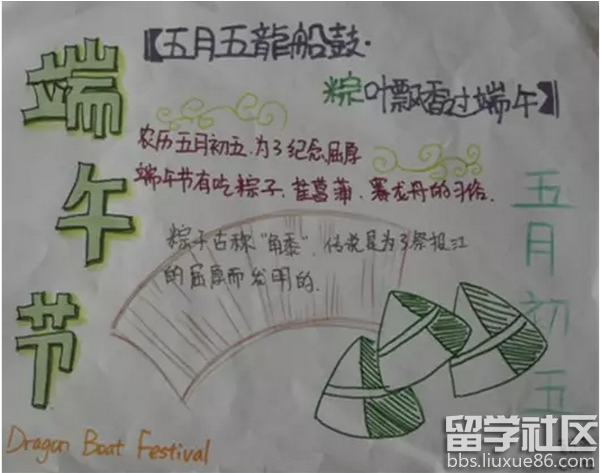 端午节
【五月五龍船鼓·
粽叶飘香过端午】
农历五月初五,为了纪念屈原
端午节有吃粽子、菖蒲、赛龙舟的习俗.
粽子古称"角黍",传说是为了祭投江
的屈原而发明的.
五月初五
Dragon Boat Festival
留学社区
bbs.liuxue86.com